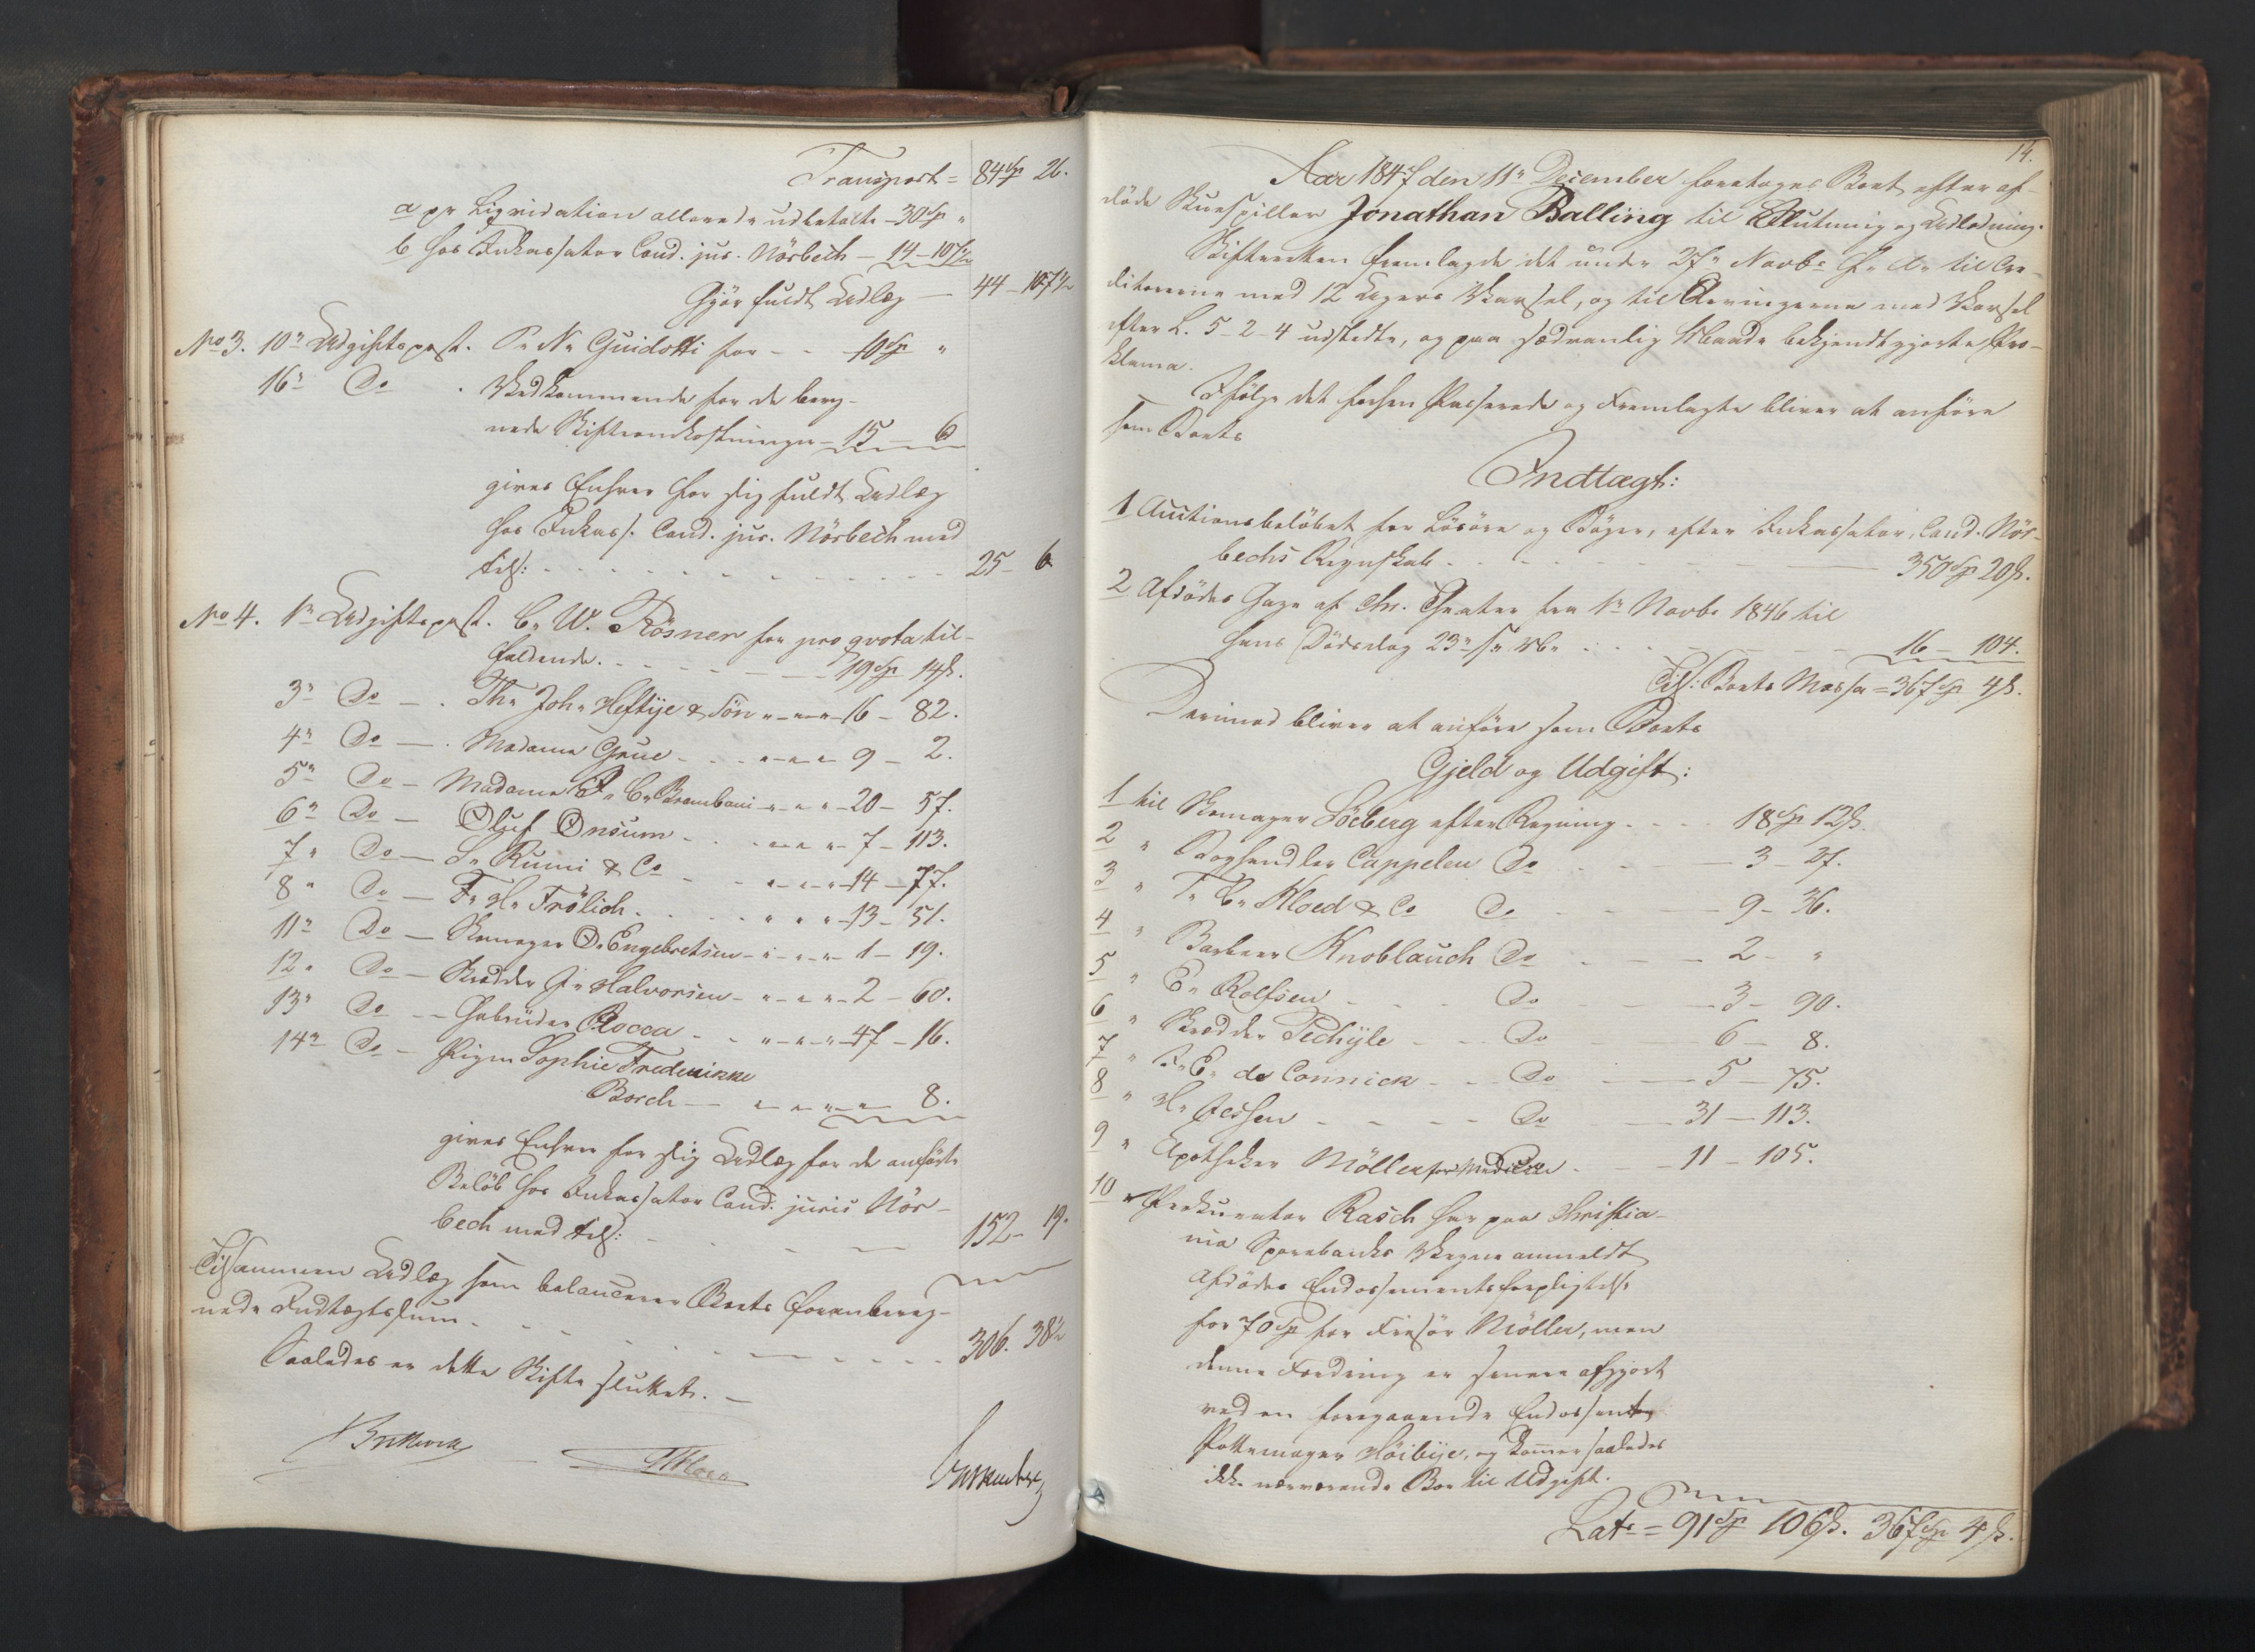 Transport = 84 Sp 26.
a pr Liqvidation allerede udbetalte – 30 Sp "
b hos Inkassator Cand. jur. Nörbech – 14 – 107½
Gjör fuldt Udlæg — 44 – 107½
No 3. 10de Udgiftspost. P. N. Guidotti for – – 10 Sp "
16de Do . Vedkommende for de bereg-
nede Skifteomkostninger – 15 – 6
gives Enhver for sig fuldt Udlæg
hos Inkass. Cand. jur. Nörbech med
tils: 25 – 6
No 4. 1ste Udgiftspost. C. W. Rösner for pro qvota til-
faldende. 19 Sp 14 ß.
3de Do — . Th. Joh. Heftije & Sön " – " – " – 16 – 82.
4de Do — . Madame Grue 9 – 2.
5te Do — Madame F. C. Brambani 20 – 57.
6te Do — Oluf Onsum 7 – 113.
7de Do — S. Rumi & Co 14 – 77.
8de Do — F. H. Frölich 13 – 51.
11te Do — Skomager O. Engebretsen 1 – 19.
12te Do — Skrædder J. Halvorsen 2 – 60.
13de Do — Gebrüder Rocca 47 – 16.
14de Do — Pigen Sophie Frederikke
Borch — 8.
gives Enhver for sig Udlæg for de anförte
Belöb hos Inkassator Cand. juris Nör-
bech med tils: 152 – 19.
Tilsammen Udlæg som balancerer Boets foranbereg-
nede Indtægtssum 306. 38½
Saaledes er dette Skifte sluttet. —
14.
Aar 1847 den 11te December foretoges Boet efter af-
döde Skuespiller Jonathan Balling til Slutning og Udlodning.
Skifteretten fremlagde det under 27de Novbr f. A. til Cre-
ditorerne med 12 Ugers Varsel, og til Arvingerne med Varsel
efter L. 5–2–4 udstedte, og paa sædvanlig Maade bekjendtgjorte Pro-
klama.
Ifölge det forhen Passerede og Fremlagte bliver at anföre
som Boets
Indtægt:
1 Auctionsbelöbet for Lösöre og Böger, efter Inkassator, Cand. Nör-
bechs Regnskab 350 Sp 20 ß.
2 Afdödes Gage af Chr. Theater fra 1ste Novbr 1846 til
hans Dödsdag 23de s. M. 16 – 104.
Tils: Boets Massa = 367 Sp 4 ß.
Derimod bliver at anföre som Boets
Gjeld og Udgift:
1 til Skomager Löeberg efter Regning 18 Sp 12 ß.
2 " Boghandler Cappelen Do 3 – 27.
3 " T. C. Kloed & Co Do 9 – 36.
4 " Barbeer Knoblauch Do 2 – "
5 " E. Rolfsen Do 3 – 90.
6 " Skrædder Pechijle Do 6 – 8.
7 " F. E. de Connick Do 5 – 75.
8 " H. Jessen Do 31 – 113.
9 " Apotheker Möller for Medicin 11 – 105.
10 " Prokurator Rasch har paa Christia-
nia Sparebanks Vegne anmeldt
Afdödes Endossementsforpligtelse
for 70 Sp for Frisör Möller, men
denne Fordring er senere afgjort
ved en foregaaende Endossent,
Pottemager Höibije, og kommer saaledes
ikke nærværende Bo til Udgift.
Lats = 91 Sp 106 ß. 367 Sp 4 ß.